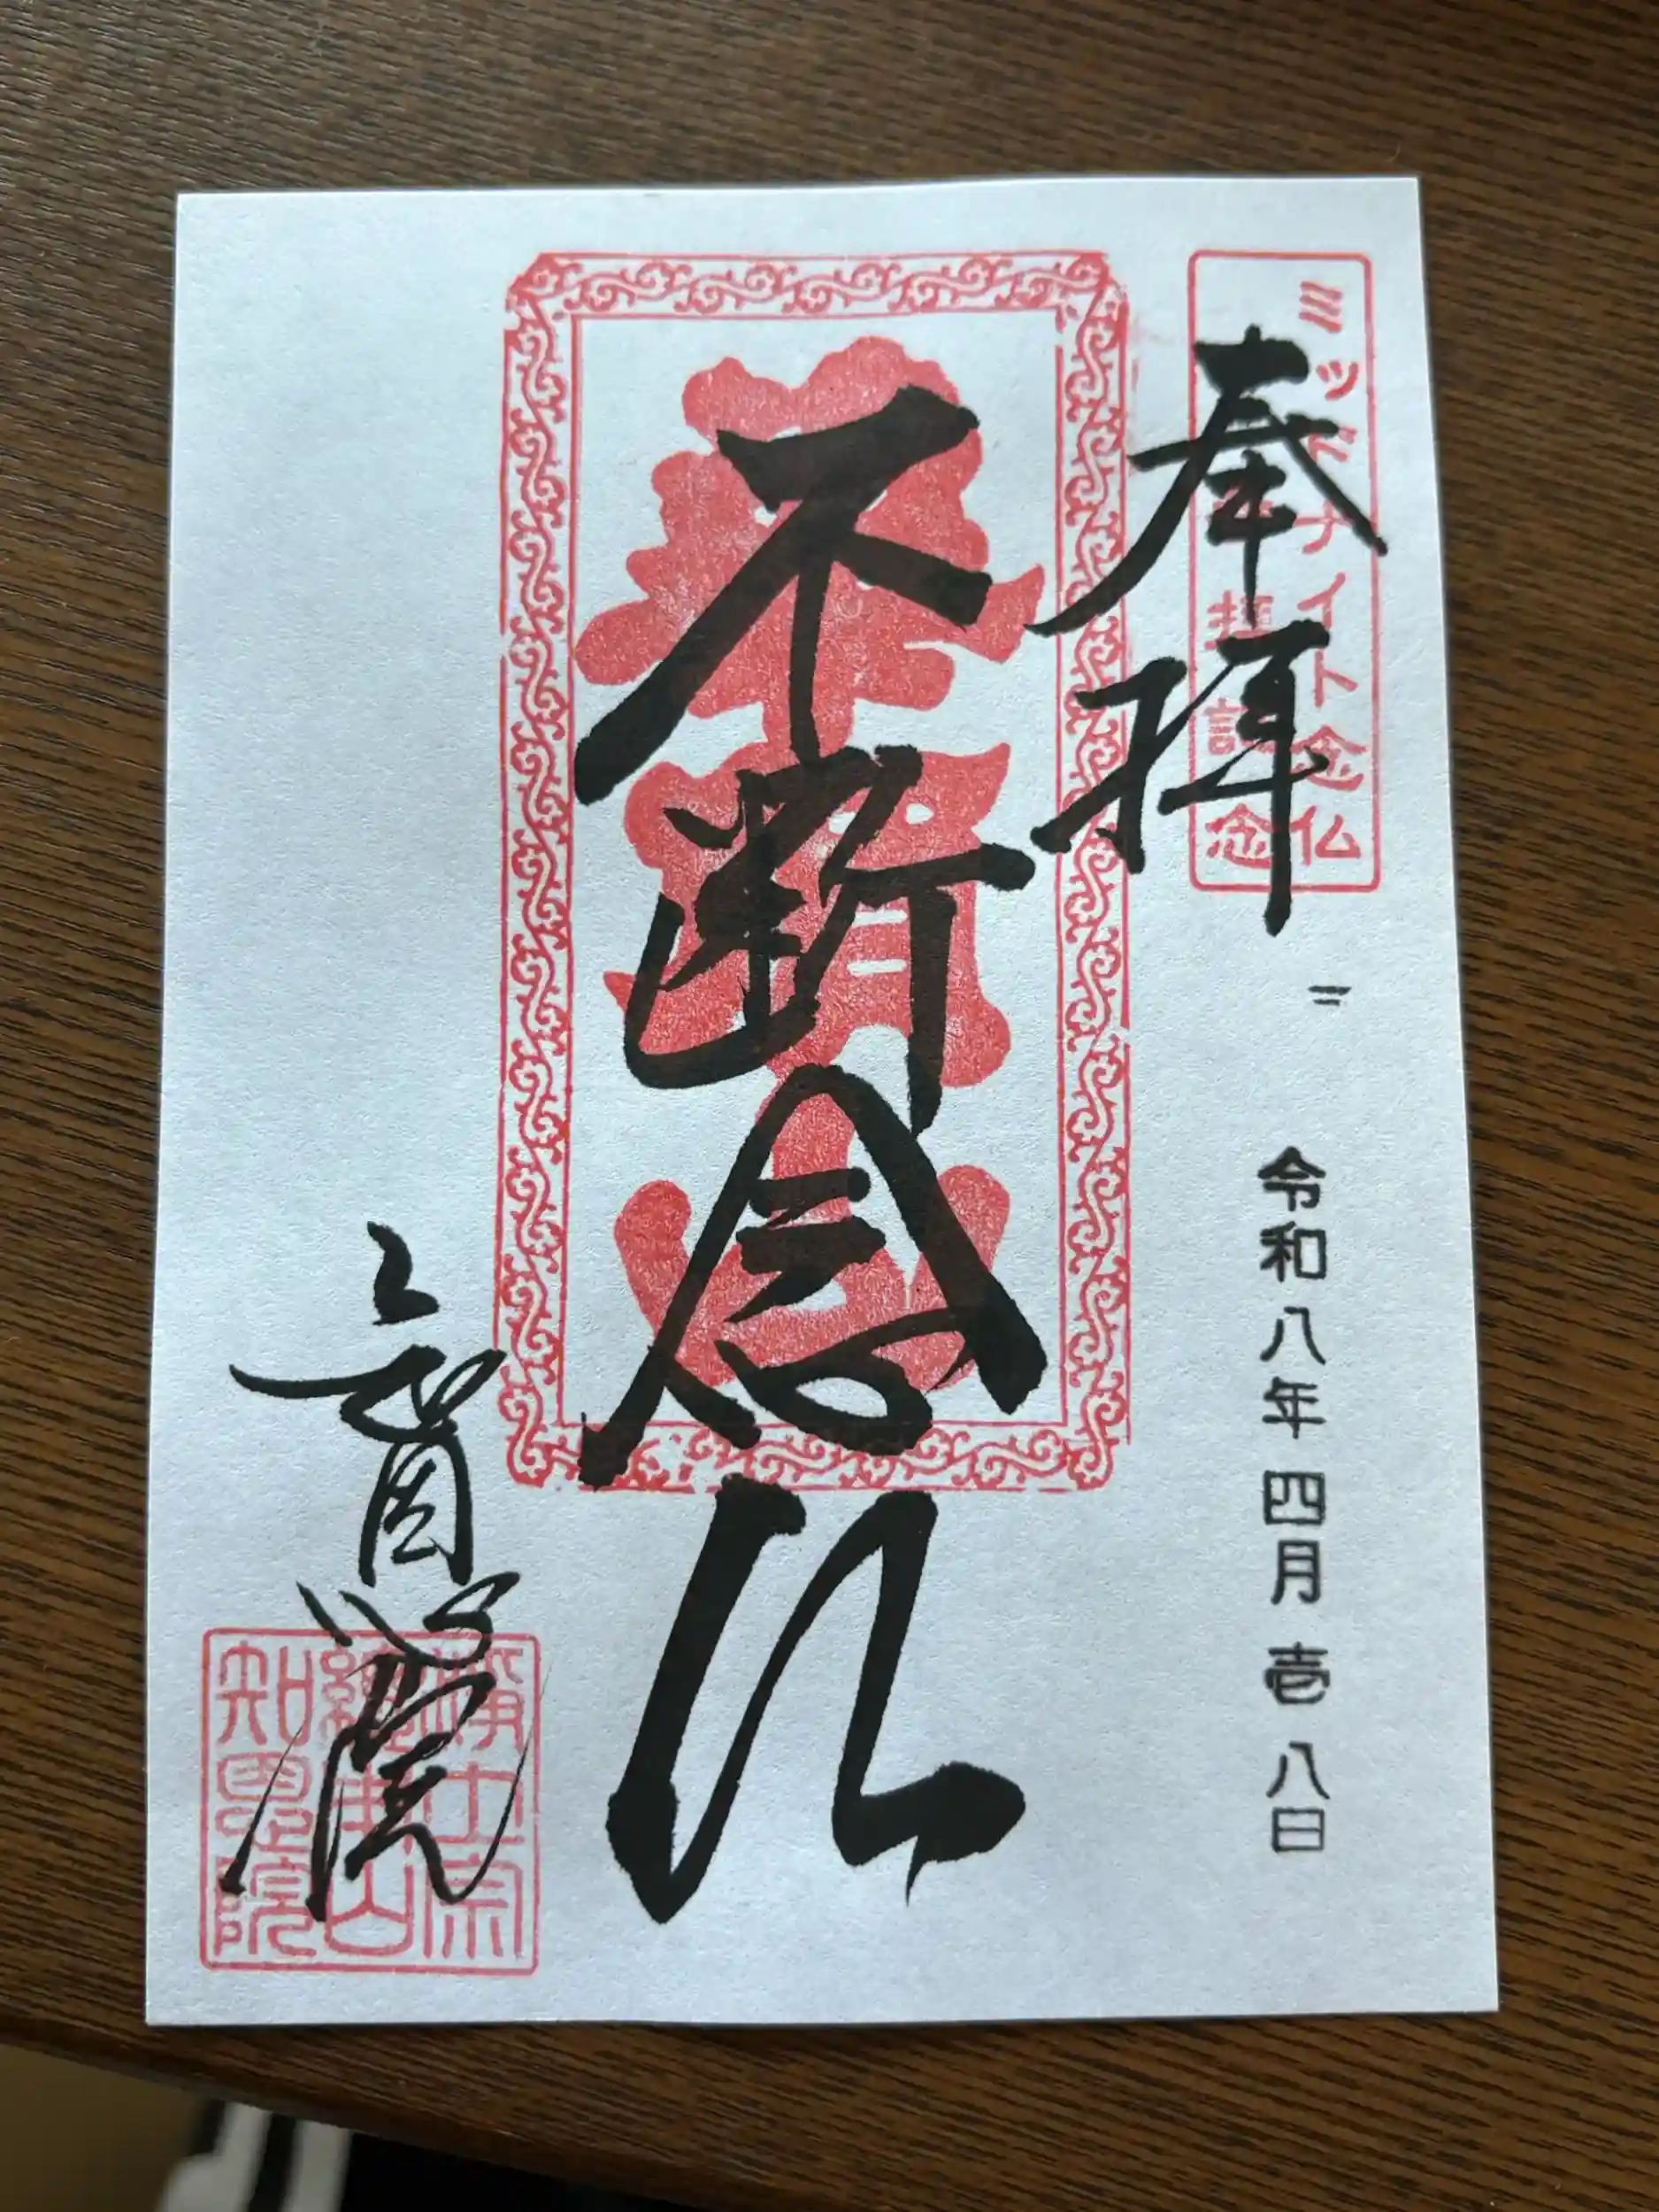 奉拝
ミッドナイト念仏
拝記念
令和八年四月壱八日
華頂山
不断念仏
知恩院
淨土宗
總本山
知恩院